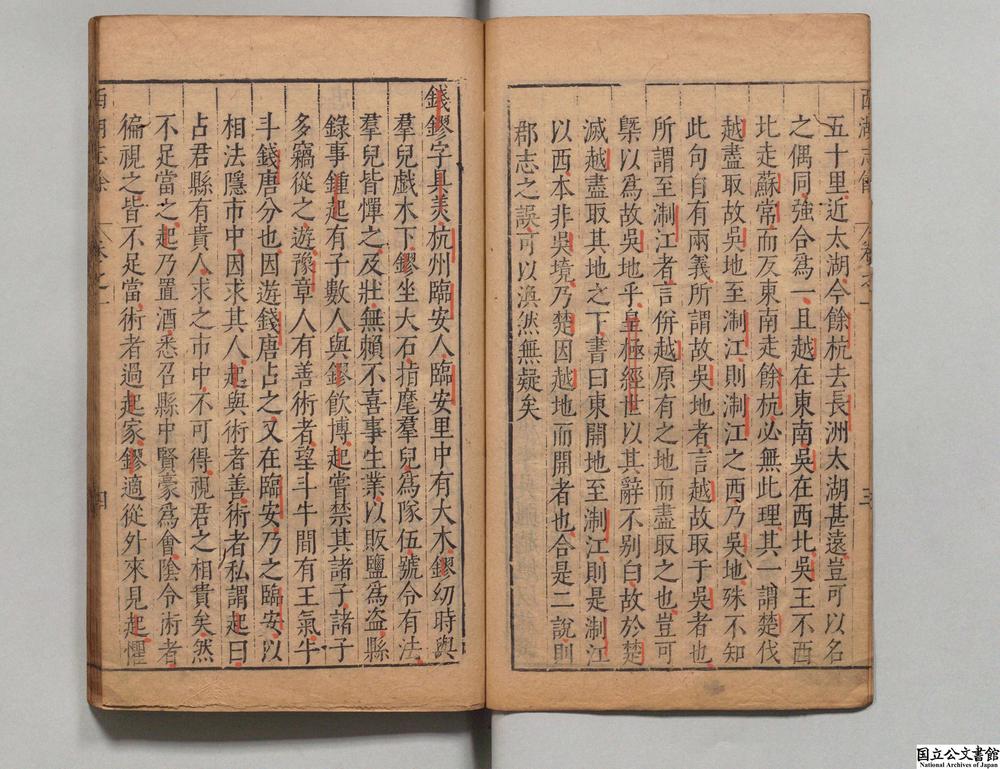 五十里近太湖今餘杭去長洲太湖甚遠豈可以名
之偶同強合爲一且越在東南吳在西北吳王不西
北走蘇常而反東南走餘杭必無此理其一謂楚伐
越盡取故吳地至淛江則淛江之西乃吳地殊不知
此句自有兩義所謂故吳地者言越故取于吳者也
所謂至淛江者言併越原有之地而盡取之也豈可
槩以爲故吳地乎皇極經世以其辭不别白故於楚
滅越盡取其地之下書曰東開地至淛江則是淛江
以西本非吳境乃楚因越地而開者也合是二說則
郡志之誤可以渙然無疑矣
西湖志餘
卷之一
三
錢鏐字具美杭州臨安人臨安里中有大木鏐幼時與
羣兒戲木下鏐坐大石指麾羣兒爲隊伍號令有法
羣兒皆憚之及壯無賴不喜事生業以販鹽爲盗縣
錄事鍾起有子數人與鏐飲博起嘗禁其諸子諸子
多竊從之遊豫章人有善術者望斗牛間有王氣牛
斗錢唐分也因遊錢唐占之又在臨安乃之臨安以
相法隱市中因求其人起與術者善術者私謂起曰
占君縣有貴人求之市中不可得視君之相貴矣然
不足當之起乃置酒悉召縣中賢豪爲會陰令術者
徧視之皆不足當術者過起家鏐適從外來見起懼
西湖志餘
卷之一
四
国立公文書館
National Archives of Japan